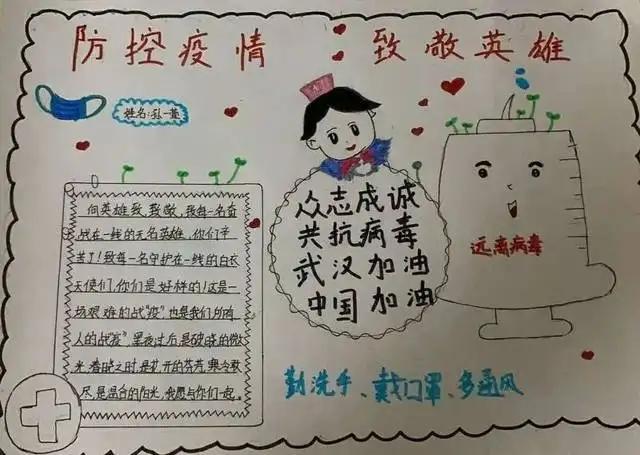 防控疫情 致敬英雄
姓名:孙一蓝
向英雄致敬,致敬,我每一名奋
战在一线的无名英雄,你们辛
苦了!致每一名守护在一线的白衣
天使们,你们是好样的!这是一
场艰难的战"疫"也是我们所有
人的战"疫"黑夜过后,是破晓的微
光,春晓之时,是花开的芬芳,寒冬散
尽,是温合的阳光,我愿与你们一起。
众志成诚
共抗病毒
武汉加油
中国加油
远离病毒
勤洗手、戴口罩、多通风